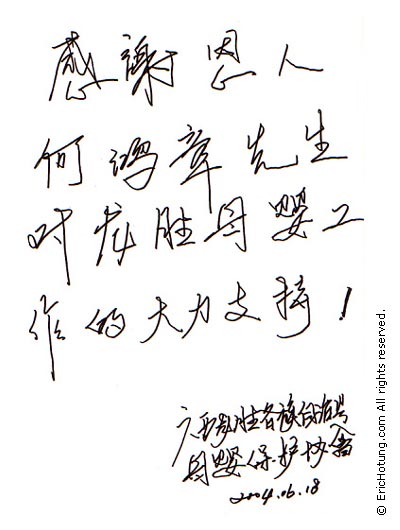 感謝恩人
何鸿章先生
对龙胜母婴工
作的大力支持！
广西龙胜各族自治县
母婴保护协会
2004.06.18
© EricHotung.com All rights reserved.